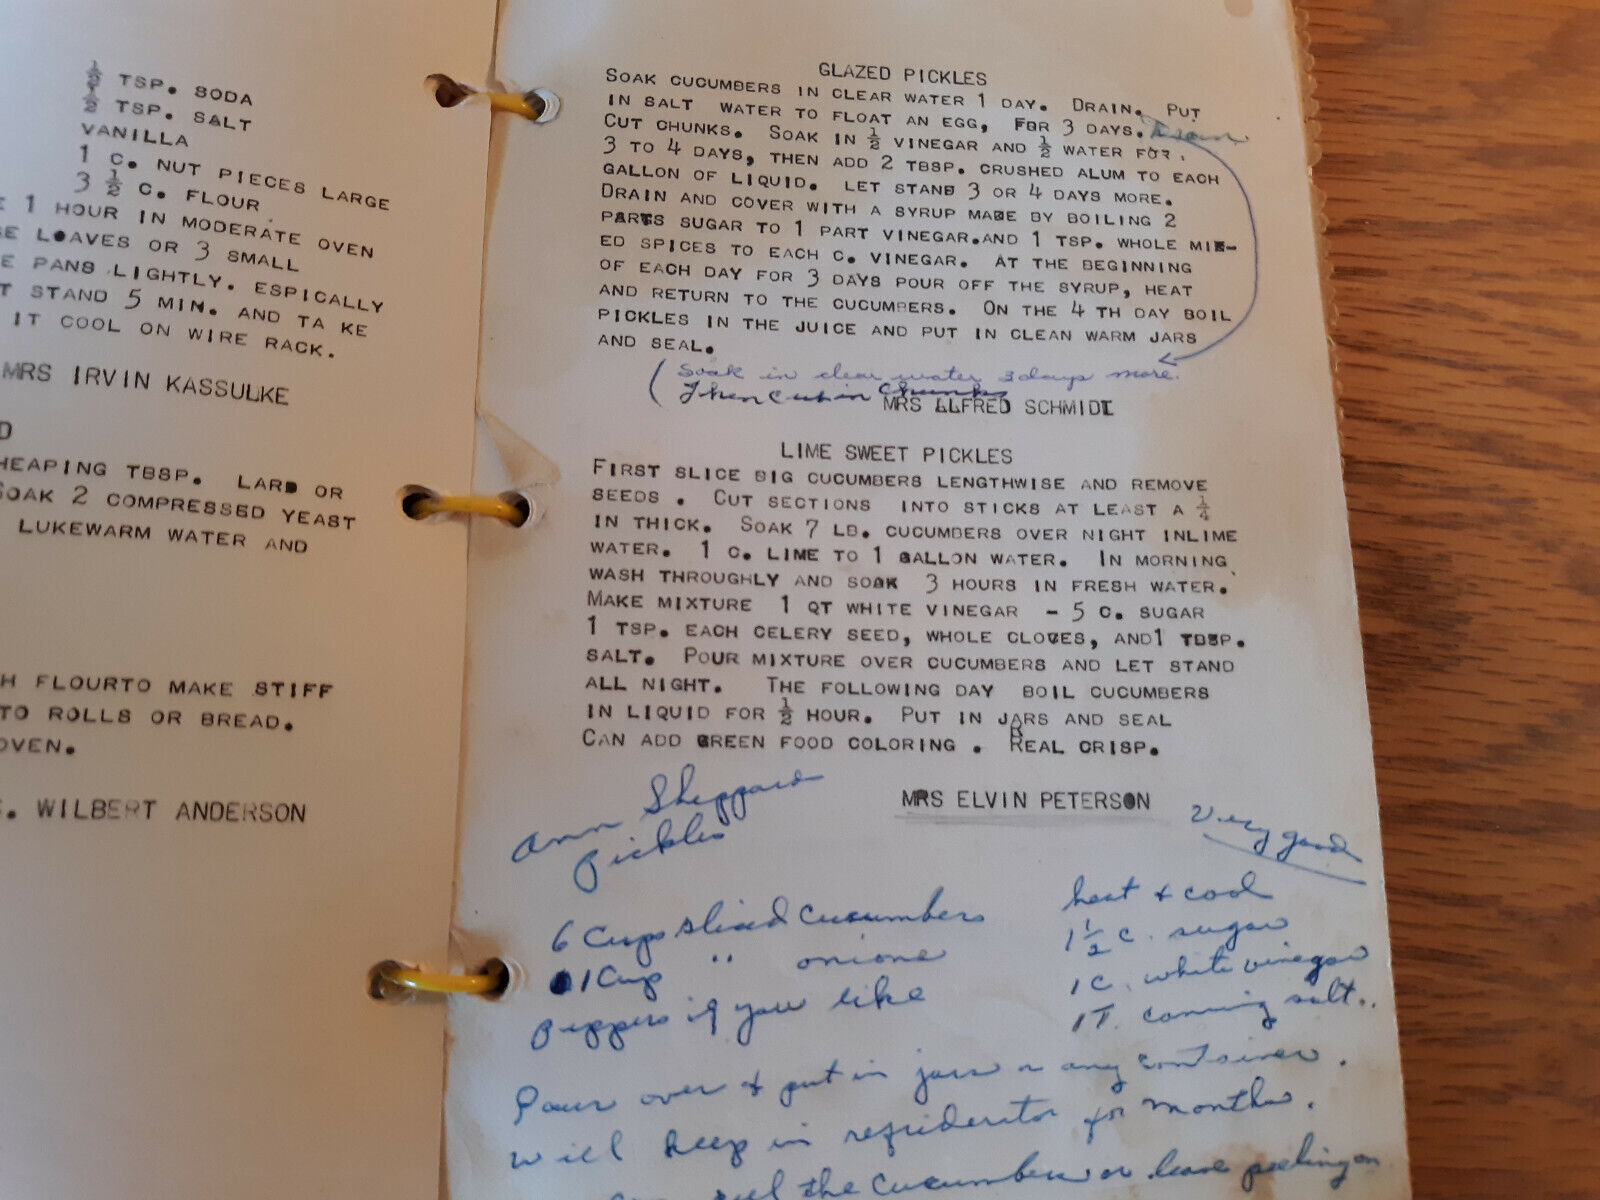 ½ TSP. SODA
½ TSP. SALT
VANILLA
1 C. NUT PIECES LARGE
3 ½ C. FLOUR
1 HOUR IN MODERATE OVEN
LOAVES OR 3 SMALL
PANS LIGHTLY. ESPICALLY
STAND 5 MIN. AND TA KE
IT COOL ON WIRE RACK.
MRS IRVIN KASSULKE
HEAPING TBSP. LARD OR
SOAK 2 COMPRESSED YEAST
LUKEWARM WATER AND
FLOURTO MAKE STIFF
TO ROLLS OR BREAD.
OVEN.
WILBERT ANDERSON
GLAZED PICKLES
SOAK CUCUMBERS IN CLEAR WATER 1 DAY. DRAIN. PUT
IN SALT WATER TO FLOAT AN EGG, FOR 3 DAYS. Drain
CUT CHUNKS. SOAK IN ½ VINEGAR AND ½ WATER FOR.
3 TO 4 DAYS, THEN ADD 2 TBSP. CRUSHED ALUM TO EACH
GALLON OF LIQUID. LET STAND 3 OR 4 DAYS MORE.
DRAIN AND COVER WITH A SYRUP MADE BY BOILING 2
PARTS SUGAR TO 1 PART VINEGAR.AND 1 TSP. WHOLE MIX-
ED SPICES TO EACH C. VINEGAR. AT THE BEGINNING
OF EACH DAY FOR 3 DAYS POUR OFF THE SYRUP, HEAT
AND RETURN TO THE CUCUMBERS. ON THE 4 TH DAY BOIL
PICKLES IN THE JUICE AND PUT IN CLEAN WARM JARS
AND SEAL.
(Soak in clear water 3 days more.
Then cut in chunks
MRS ALFRED SCHMIDT
LIME SWEET PICKLES
FIRST SLICE BIG CUCUMBERS LENGTHWISE AND REMOVE
SEEDS . CUT SECTIONS INTO STICKS AT LEAST A ¼
IN THICK. SOAK 7 LB. CUCUMBERS OVER NIGHT INLIME
WATER. 1 C. LIME TO 1 GALLON WATER. IN MORNING
WASH THROUGHLY AND SOAK 3 HOURS IN FRESH WATER.
MAKE MIXTURE 1 QT WHITE VINEGAR - 5 C. SUGAR
1 TSP. EACH CELERY SEED, WHOLE CLOVES, AND1 TBSP.
SALT. POUR MIXTURE OVER CUCUMBERS AND LET STAND
ALL NIGHT. THE FOLLOWING DAY BOIL CUCUMBERS
IN LIQUID FOR ½ HOUR. PUT IN JARS AND SEAL
CAN ADD GREEN FOOD COLORING . REAL CRISP.
MRS ELVIN PETERSON
Ann Sheppard
Pickles
Very good
6 Cups sliced cucumbers
1 Cup " onions
peppers if you like
heat + cool
1½ c. sugar
1 C. white vinegar
1 T. canning salt..
Pour over + put in jars or any container.
Will keep in refriderator for months.
peel the cucumbers or leave peeling on